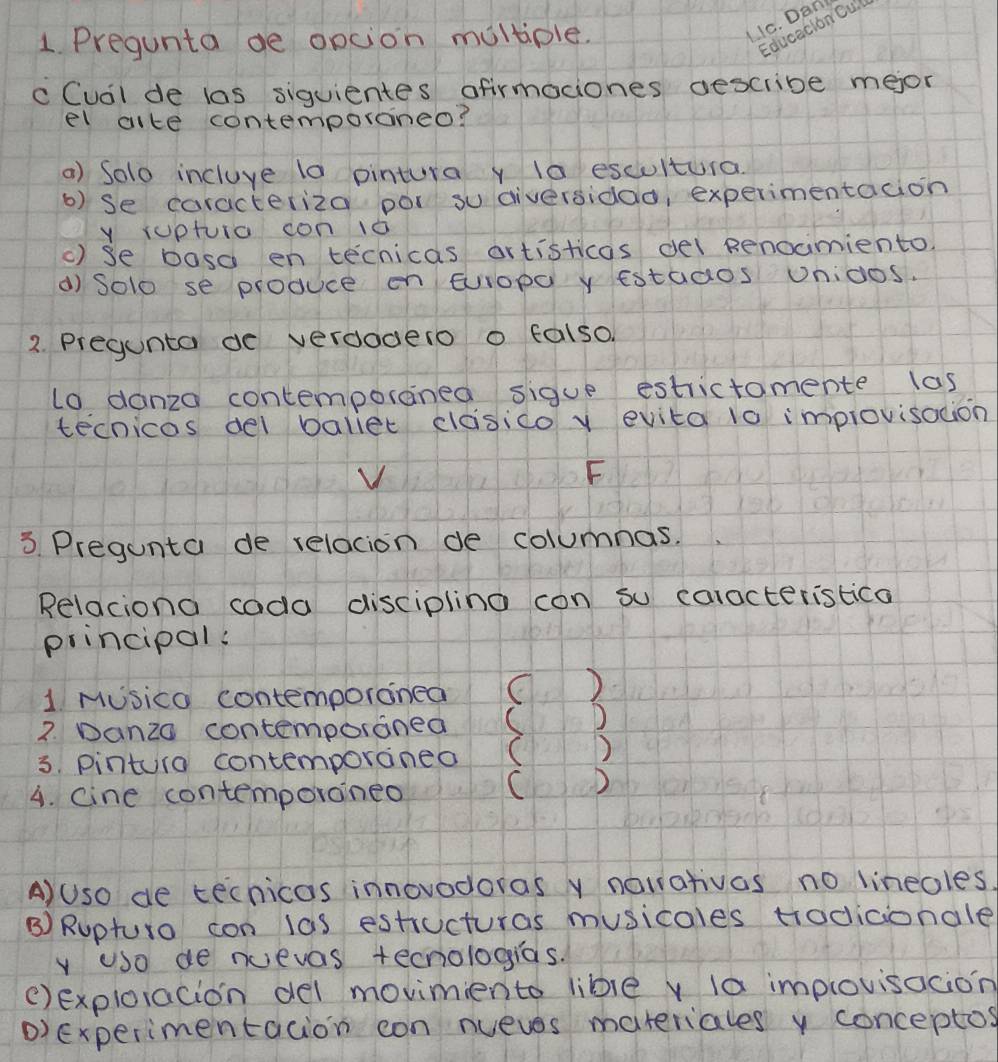 Lic. Dani
Educación Cul
1. Pregunta de opción múltiple.
¿Cuál de las siguientes afirmaciones describe mejor
el arte contemporáneo?
a) Solo incluye la pintura y la escultura.
b) Se caracteriza por su diversidad, experimentación
y ruptura con la
c) Se basa en técnicas artísticas del Renacimiento.
d) Solo se produce en Europa y Estados Unidos.
2. Pregunta de verdadero o falso.
La danza contemporánea sigue estrictamente las
técnicas del ballet clásico y evita la improvisación
V F
3. Pregunta de relación de columnas.
Relaciona cada disciplina con su característica
principal:
1 Música contemporánea ( )
2. Danza contemporánea ( )
3. Pintura contemporánea ( )
4. Cine contemporáneo ( )
A) Uso de técnicas innovadoras y narrativas no lineales.
B) Ruptura con las estructuras musicales tradicionale
y uso de nuevas tecnologías.
C) Exploración del movimiento libre y la improvisación
D) Experimentación con nuevos materiales y conceptos